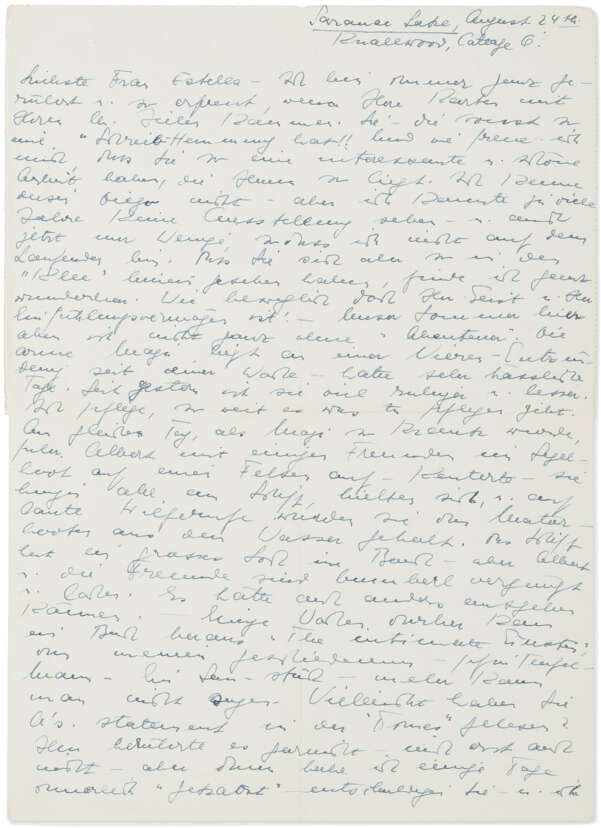 Saranac Lake, August 24th
Knollwood, Cottage 6.
Liebste Frau Estella – Ich bin immer ganz ge-
rührt u. so erfreut, wenn Ihre Karten mit
Ihren lb. Zeilen kommen. Sie – die sonst so
eine "Schreib-Hemmung hat"!! Und wie freue ich
mich, dass Sie so eine interessante u. schöne
Arbeit haben, die Ihnen so liegt. Ich kenne
diesen nicht – aber ich konnte ja viele
Jahre keine Ausstellung sehen – u. auch
jetzt nur wenige, so dass ich nicht auf dem
Laufenden bin. Dass Sie sich aber so in den
"Klee" hinein gesehen haben, finde ich ganz
wunderbar. Wie beweglich doch Ihr Geist u. Ihr
Einfühlungsvermögen ist! – Unser Sommer hier
aber ist nicht ganz ohne "Abenteuer". Die
arme Maja liegt an einer Nieren-Entzün-
dung seit einer Woche – hatte sehr hässliche
Tage. Seit gestern ist sie viel ruhiger u. besser.
Ich pflege, so weit es was zu pflegen gibt.
Am gleichen Tag, als Maja so krank wurde,
fuhr Albert mit einigen Freunden im Segel-
boot auf einen Felsen auf – kenterte – sie
hingen alle am Schiff, hielten sich, u. auf
laute Hilferufe wurden sie von Motor-
booten aus dem Wasser geholt. Das Schiff
hat ein grosses Loch im Bauch – aber Albert
u. die Freunde sind kreuzfidel vergnügt
u. lachen. Es hätte auch anders ausgehen
können. – Einige Wochen vorher kam
ein Buch heraus "The intimate Einstein",
von meinem geschiedenen – Schwiegersohn –
ein – mehr kann
man nicht sagen. Vielleicht haben Sie
A's. statement in den "Times" gelesen?
Ihn berührte es garnicht – mich erst auch
nicht – aber dann habe ich einige Tage
innerlich – entschuldigen Sie – u. ich